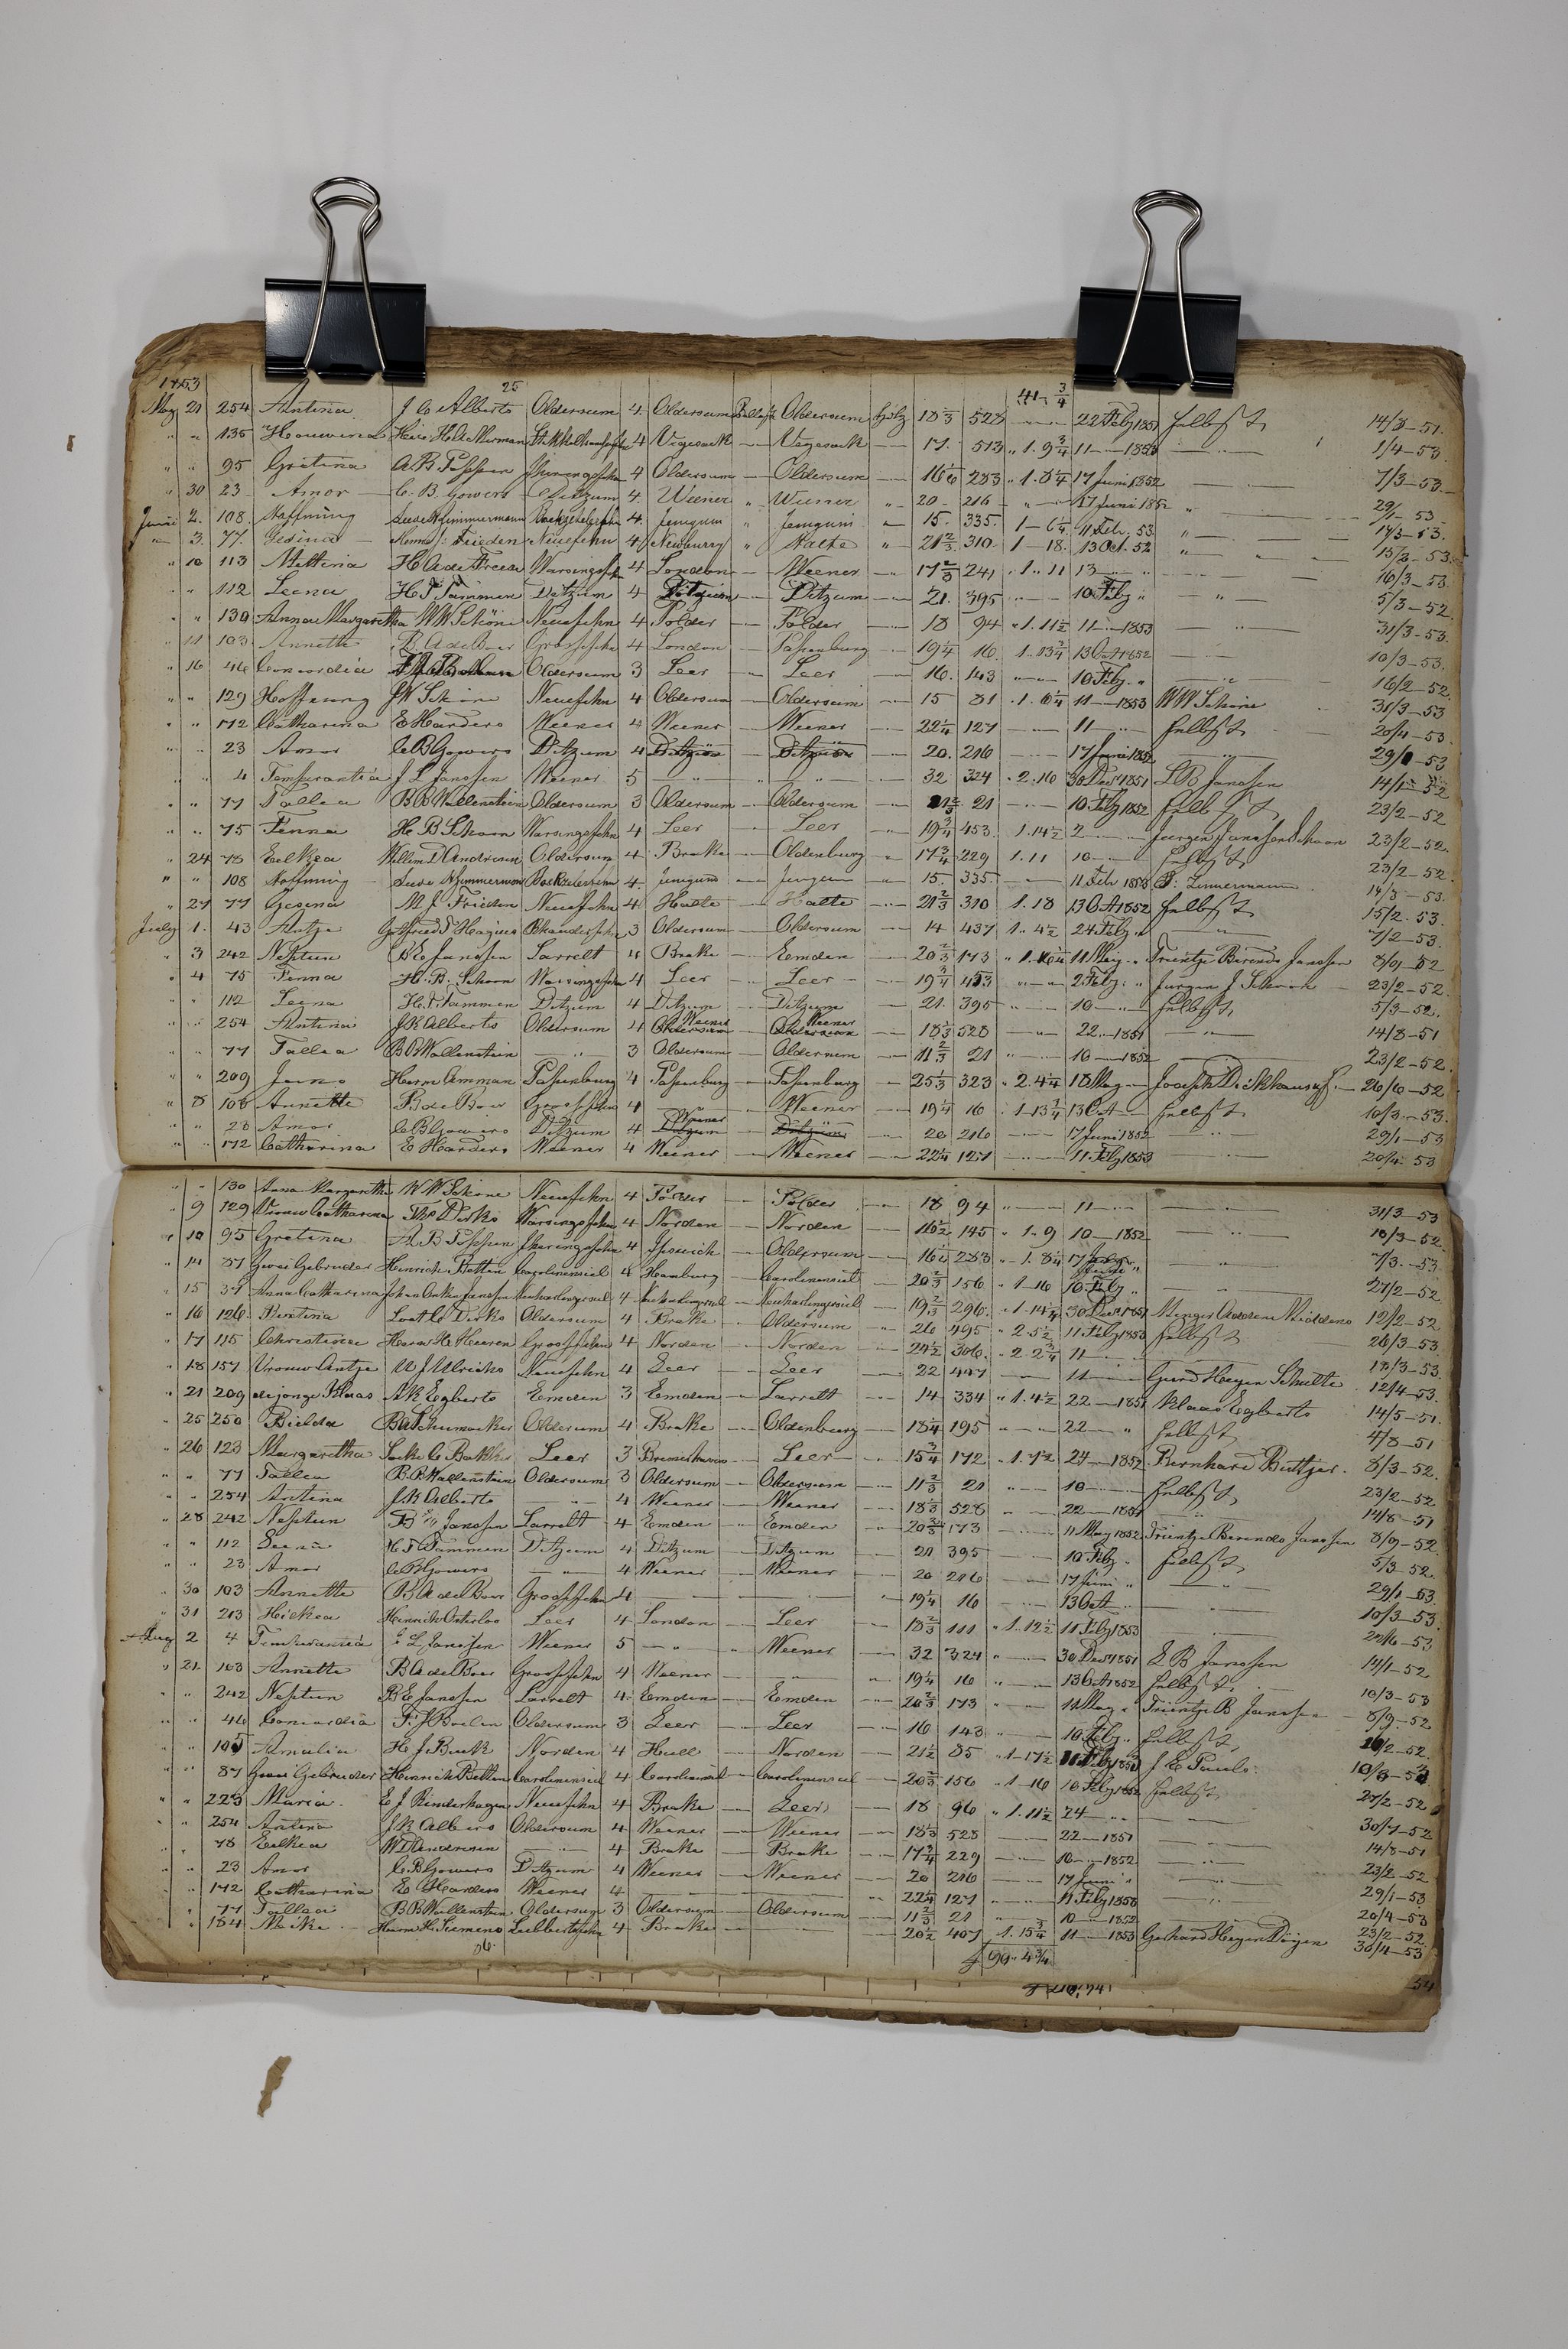 1853 25 41 3/4
May 21 254 Antina J C Alberts Oldersum 4 Oldersum Ballast Oldersum Holz 18 1/3 528 22 Feby 1851 Selbst 14/8-51.
" " 135 Houwina 4 Vegesack Vegesack 17. 513 " 1. 9 3/4 11 — 1853 1/4-53.
" " 95 Gretina A B Poppen 4 Oldersum Oldersum 16 1/6 283 " 1. 8 1/4 17 Juni 1852 7/3-53
" 30 23 Amor C. B. Gowers Ditzum 4. Weener " Weener " 20 - 216 17 Juni 1852 29/1-53
Juni 2. 108. Hoffnung 4. Jemgum " Jemgum " 15. 335. 1-6 1/4 11 Feb. 53 14/3-53.
" 3. 77. Gesina Frieden Neuefehn 4 Newburry " Halte " 21 2/3. 310 1-18. 13 Oct. 52 15/2-53
" 10 113 Mettina H A de Freese Warsingsfehn 4 London Weener 17 2/3 241 1 " 11 13 16/3-53
" " 112 Leena H F Tammen Ditzum 4 Ditzum Ditzum 21. 395 10 Feby " 5/3-52.
" " 130 Anna Margaretha W W Schöne Neuefehn 4 Polder Polder 18 94 " 1. 11 1/2 11 — 1853 31/3-53.
" 11 103 Annette B. A de Boer Groosfehn 4 London Papenburg 19 1/4 16. 1. 13 3/4 13 Oct 1852 10/3-53.
" 16 46 Concordia Oldersum 3 Leer Leer 16. 143 10 Feby. " 16/2-52.
" " 129 Hoffnung J W Schöne Neuefehn 4 Oldersum Oldersum 15 81 " 1. 6 1/4 11 — 1853 W W Schöne 31/3-53
" " 172 Catharina E Harders Weener 4 Weener Weener 22 1/4 127 11 Selbst 20/4-53
" " 23 Amor C B Gowers Ditzum 4 Ditzum Ditzum 20. 216 17 Juni 1852 29/1-53
" " 4 Temperantia J L Janssen Weener 5 32 324 " 2. 16 30 Decr 1851 L B Janssen 14/1-52
" " 77 Tallea B B Wallenstein Oldersum 3 Oldersum Oldersum 11 2/3 21 10 Feby 1852 Selbst 23/2-52
" " 75 Fenna H. B Schoon Warsingsfehn 4 Leer Leer 19 3/4 453. 1. 14 1/2 2 Jurgen Janssen Schoon 23/2-52.
" 24 78 Eelkea Willem D Andresen Oldersum 4 Brake Oldenburg 17 3/4 229 1. 11 10 Selbst 23/2-52.
" " 108 Hoffnung 4. Jemgum Jemgum 15. 335. 11 Feb 1853 14/3-53.
" 27 77 Gesina M J Frieden Neuefehn 4 Halte Halte 21 2/3 310 1. 18 13 Oct 1852 Selbst 15/2. 53.
July 1. 43 Antje 3 Oldersum Oldersum 14 437 1. 4 1/2 24 Feby " 7/2-53.
" 3 242 Neptun B E Janssen Larrelt 4 Brake Emden 20 2/3 173 11 May " Trientje Berends Janssen 8/9-52
" 4 75 Fenna H. B. Schoon Warsingsfehn 4 Leer Leer 19 3/4 453 2 Feby. " Jurgen J Schoon 23/2-52.
" " 112 Leena H. F. Tammen Ditzum 4 Ditzum Ditzum 21. 395 10 Selbst, 5/3-52.
" " 254 Antina J K Alberts Oldersum 4 Oldersum Weener Oldersum Weener 18 1/3 528 22 — 1851 14/8-51
" " 77 Tallea B B Wallenstein 3 Oldersum Oldersum 11 2/3 21 10 — 1852 23/2-52.
" " 209 Juno Herm Amman Papenburg 4 Papenburg Papenburg 25 1/3 323 " 2. 4 1/4 18 May Joseph Dickhaus 26/6-52
" 8 103 Annette B de Boer Groosfehn 4 Weener 19 1/4 16 1-13 3/4 13 Oct Selbst 10/3-53.
" " 23 Amor C B Gowers Ditzum 4 Ditzum Weener Ditzum 20 216 17 Juni 1852 29/1-53
" " 172 Catharina E Harders Weener 4 Weener Weener 22 1/4 127 11 Feby 1853 20/4-53
" " 130 Anna Margaretha W W Schöne Neuefehn 4 Polder Polder 18 94 11 31/3-53
" 9 129 Vrouw Catharina Dirks Warsingsfehn 4 Norden Norden 16 1/2 145 " 1. 9 10 — 1852 10/3-52.
" 10 95 Gretina A. B Poppen 4 Ipswich Oldersum 16 1/6 283 " 1. 8 1/4 17 Juni " 7/3-53
" 14 87 Zwei Gebrüder Heinrich Betten Carolinensiel 4 Hamburg Carolinensiel 20 2/3 156 " 1-16 10 Feby " 27/2-52.
" 15 37 Anna Catharina Neuharlingersiel 4 Neuharlingersiel Neuharlingersiel 19 2/3 296. " 1-14 1/4 30 Decr 1851 12/2-52
" 16 126. Oldersum 4 Brake Oldersum 26 495 " 2. 5 1/2 11 Feby 1853 Selbst 26/3-53
" 17 115 Christina Groosfehn 4 Norden Norden 24 1/2 306. " 2 2 3/4 11 18/3-53.
" 18 157 Vrouw Antje W J Ulrichs Neuefehn 4 Leer Leer 22 447 11 Gerd Heyen Schulte 12/4-53.
" 21 209 de jonge Klaas A K Egberts Emden 3 Emden Larrelt 14 334 " 1. 4 1/2 22 — 1851 Klaas Egberts 14/5-51.
" 25 250 Bielda B Schumacher Oldersum 4 Brake Oldenburg 18 1/4 195 22 " Selbst 4/8-51
" 26 123 Margaretha C Bakker Leer 3 Bremerhaven Leer 15 3/4 172 " 1. 7 1/2 24 — 1852 Bernhard Büttjer. 8/3-52.
" " 77 Tallea B. B Wallenstein Oldersum 3 Oldersum Oldersum 11 2/3 21 10 Selbst, 23/2-52
" " 254 Antina J. K Alberts 4 Weener Weener 18 1/3 528 22 — 1851 14/8-51
" 28 242 Neptun B E Janssen Larrelt 4 Emden Emden 20 2/3 173 11 May 1852 Trientje Berends Janssen 8/9-52
" " 112 Leena H F Tammen Ditzum 4 Ditzum Ditzum 21 395 10 Feby " Selbst, 5/3-52.
" " 23 Amor C B Gowers 4 Weener Weener 20 216 17 Juni " 29/1-53.
" 30 103 Annette B A de Boer Groosfehn 4 19 1/4 16 13 Oct 10/3-53
" 31 213 Hilkea Heinrich Osterloo Leer 4 London Leer 18 2/3 111 " 1. 12 1/2 11 Feby 1853 22/6-53
Aug 2 4 Temperantia L Janssen Weener 5 Weener 32 324 30 Decr 1851 L B Janssen 14/1-52
" 21. 103 Annette B A de Boer Groosfehn 4 Weener 19 1/4 16 13 Oct 1852 Selbst. 10/3-53
" " 242 Neptun B E Janssen Larrelt 4 Emden Emden 20 2/3 173 11 May " Trientje B Janssen 8/9-52
" " 46 Concordia F J Boelen Oldersum 3 Leer Leer 16 143 10 Feby " Selbst, 16/2-52.
" " 105 Amalia H J Buck Norden 4 Hull Norden 21 1/2 85 " 1-17 1/2 J E Pauls.
" " 87 Zwei Gebrüder Heinrich Betten Carolinensiel 4 Carolinensiel Carolinensiel 20 2/3 156 " 1-16 10 Feby 1852 Selbst 27/2-52
" " 223 Maria. E J Rinderhagen Neuefehn 4 Brake Leer 18 96 " 1. 11 1/2 24 30/7-52
" " 254 Antina J K Alberts Oldersum 4 Weener Weener 18 1/3 528 22 — 1851 14/8-51
" " 78 Eelkea W D Andresen 4 Brake Brake 17 3/4 229 10 — 1852 23/2-52
" " 23 Amor C. B Gowers Ditzum 4 Weener Weener 20 216 17 Juni " 29/1-53
" " 172 Catharina E Harders Weener 4 22 1/4 127 11 Feby 1853 20/4-53
" " 77 Tallea B B Wallenstein Oldersum 3 Oldersum Oldersum 11 2/3 21 10 — 1852 23/2-52
" " 184 Meike Harm H. Siemens Lübbertsfehn 4 Brake 20 1/2 407 1. 15 3/4 11 — 1853 Gerhard Heyen Duijen 30/4-53
90 " 4 3/4
54